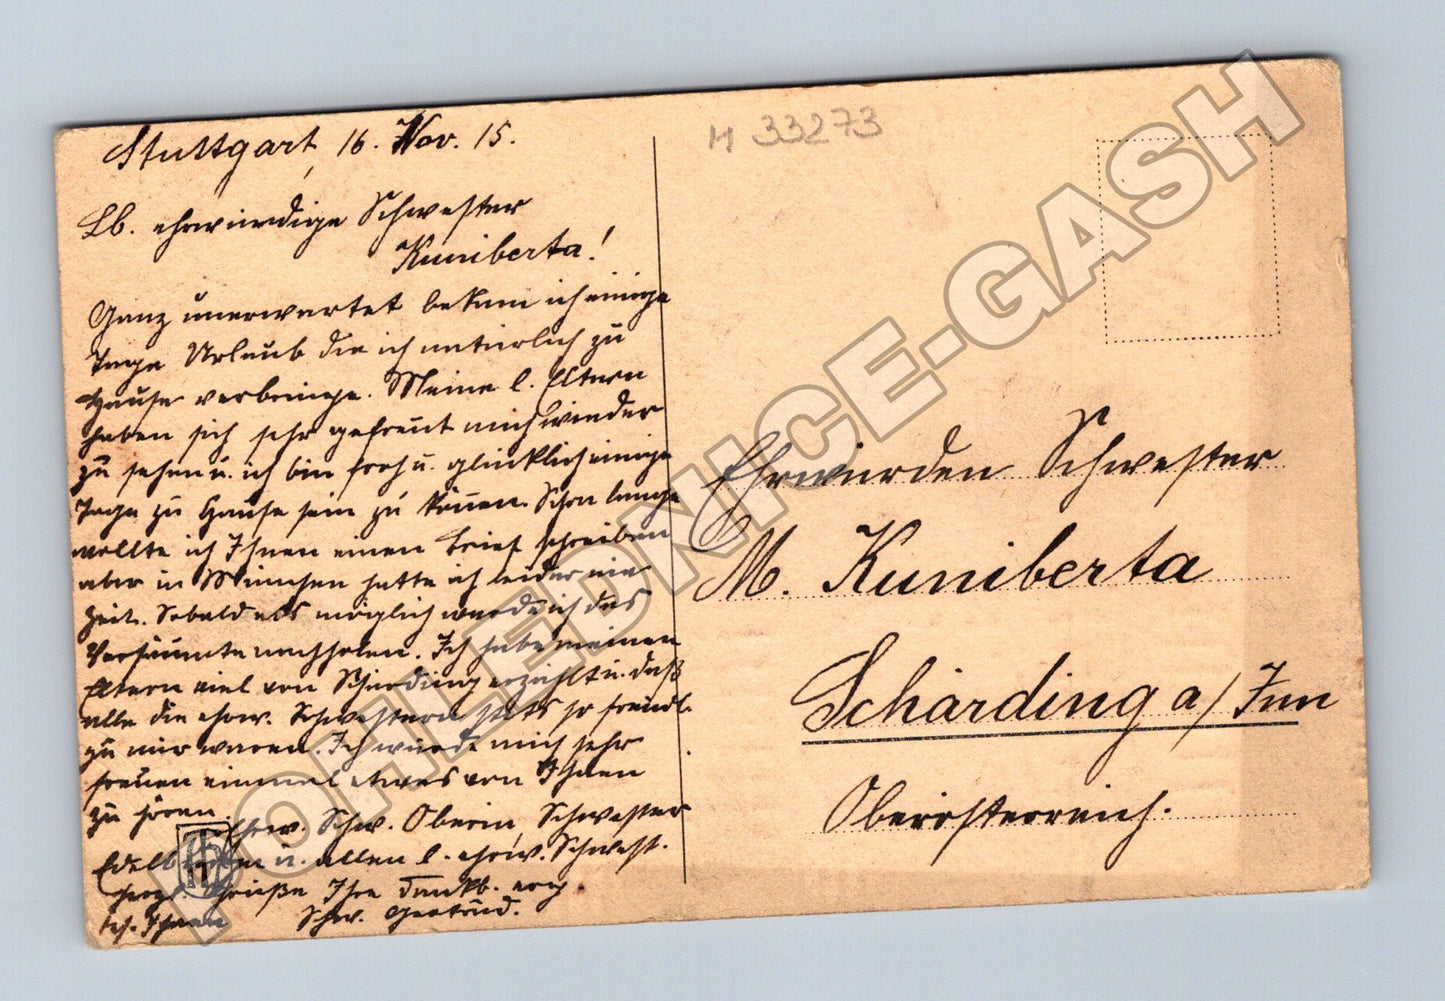 Stuttgart, 16. Nov. 15.
Lb. ehrwürdige Schwester
Kuniberta!
Ganz unerwartet bekam ich einige
Tage Urlaub die ich natürlich zu
Hause verbringe. Meine l. Eltern
haben sich sehr gefreut mich wieder
zu sehen u. ich bin froh u. glücklich einige
Tage zu Hause sein zu können. Schon lange
wollte ich Ihnen einen Brief schreiben
aber in München hatte ich leider nie
Zeit. Sobald als möglich werde ich das
Versäumte nachholen. Ich habe meinen
Eltern viel von Schärding erzählt u. daß
alle die ehrw. Schwestern stets so freundl.
zu mir waren. Ich würde mich sehr
freuen einmal etwas von Ihnen
zu hören.
Ehrw. Schw. Oberin, Schwester
u. allen l. ehrw. Schwest.
herzl. Grüße Ihre dankb.
Schw. Gertrud.
M 33273
Ehrwürden Schwester
M. Kuniberta
Schärding a/Inn
Oberösterreich.
POHLEDNICE-GASH